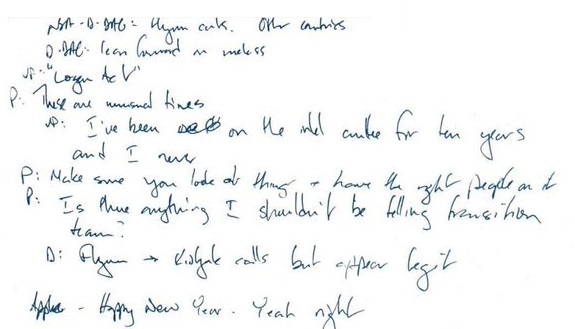 NSA-D-DAG: Flynn cuts. Other countries
D-DAG: lean forward on unclass
VP: "Logan Act"
P: These are unusual times
VP: I've been on the intel cmttee for ten years
and I never
P: Make sure you look at things + have the right people on it
P: Is there anything I shouldn't be telling transition
team?
D: Flynn → Kislyak calls but appear legit
- Happy New Year. Yeah right